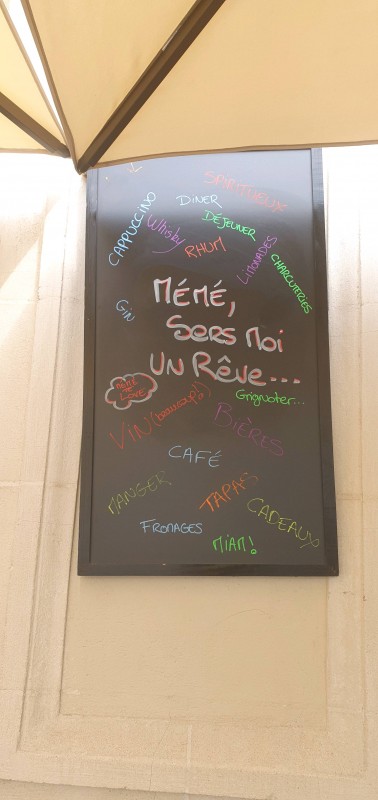 SPIRITUEUX
DINER
CAPPUCCINO
DÉJEUNER
Whisky
RHUM
LIMONADES
CHARCUTERIES
GIN
MÉMÉ,
SERS MOI
UN RÊVE...
MÉMÉ
JE
LOVE
Grignoter...
VIN (beaucoup!)
BIÈRES
CAFÉ
MANGER
TAPAS
CADEAUX
FROMAGES
MIAM!